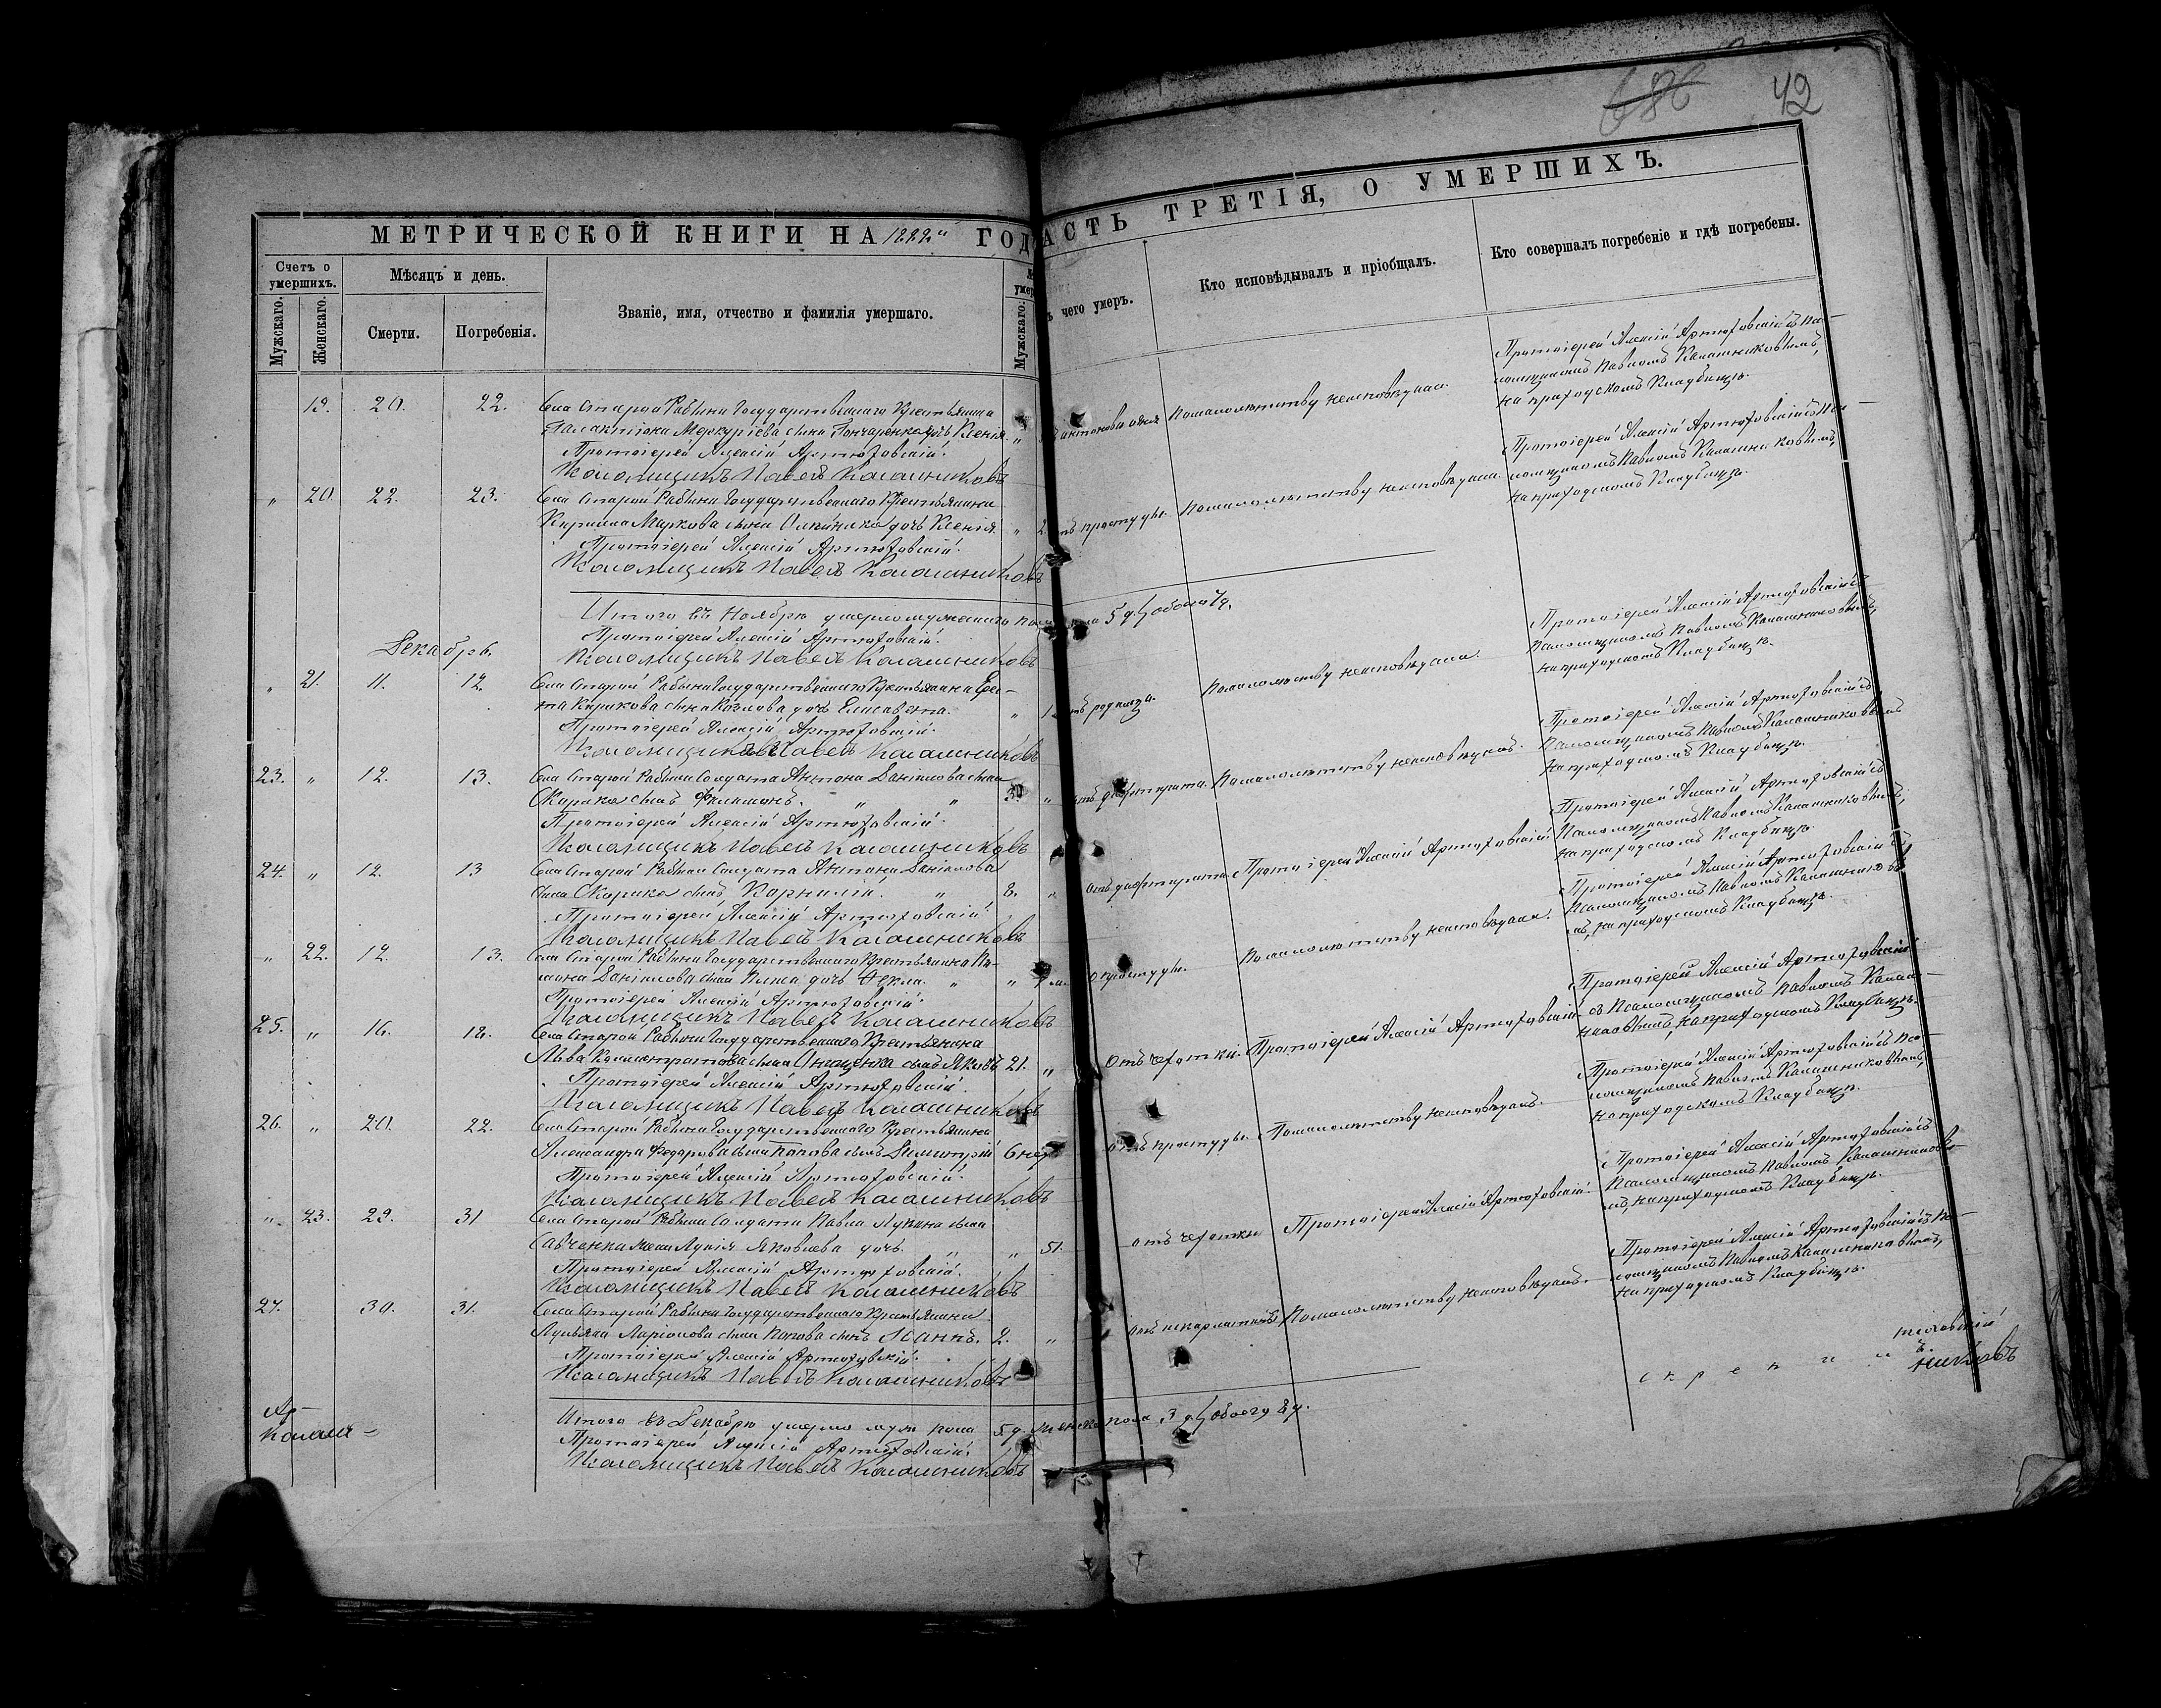 686 42
МЕТРИЧЕСКОЙ КНИГИ НА 1882й ГОД
АСТЬ ТРЕТІЯ, О УМЕРШИХЪ.
Счетъ о умершихъ.
Мужскаго.
Женскаго.
Мѣсяцъ и день.
Смерти.
Погребенія.
Званіе, имя, отчество и фамилія умершаго.
умер
Мужскаго.
ъ чего умеръ.
Кто исповѣдывалъ и пріобщалъ.
Кто совершалъ погребеніе и гдѣ погребены.
19. 20. 22. Села Старой Рабыни Государственнаго Крестьянина
Галактіона Меркуріева сына Гончаренкова дочь Ксенія
антонова огня По малолѣтству неисповѣдана.
Протоіерей Алексій Артюховскій съ Пса-
ломщикомъ Павломъ Калашниковымъ,
на приходскомъ Кладбищѣ.
Протоіерей Алексій Артюховскій.
Псаломщикъ Павелъ Калашниковъ
" 20. 22. 23. Села Старой Рабыни Государственнаго Крестьянина
Кирилла Маркова сына дочь Ксенія " 2
тъ простуды. По малолѣтству неисповѣдана.
Протоіерей Алексій Артюховскій съ Пса-
ломщикомъ Павломъ Калашниковымъ,
на приходскомъ Кладбищѣ.
Протоіерей Алексій Артюховскій.
Псаломщикъ Павелъ Калашниковъ
Итого въ Ноябрѣ умерло мужескаго пола 5 д. обоего 7 д.
Протоіерей Алексій Артюховскій.
Псаломщикъ Павелъ Калашниковъ
Декабрь.
" 21. 11. 12. Села Старой Рабыни Государственнаго Крестьянина
сына Козлова дочь Елисавета. " 1
тъ родимца. По малолѣтству неисповѣдана.
Протоіерей Алексій Артюховскій съ
Псаломщикомъ Павломъ Калашниковымъ,
на приходскомъ Кладбищѣ.
Протоіерей Алексій Артюховскій.
Псаломщикъ Павелъ Калашниковъ
23. " 12. 13. Села Старой Рабыни Солдата Антона Даніилова сына
Скорика сынъ Филимонъ. " "
отъ дифтерита. По малолѣтству неисповѣданъ.
Протоіерей Алексій Артюховскій съ
Псаломщикомъ Павломъ Калашниковымъ
на приходскомъ Кладбищѣ.
Протоіерей Алексій Артюховскій.
Псаломщикъ Павелъ Калашниковъ
24. " 12. 13 Села Старой Рабыни Солдата Антона Даніилова
сына Скорика сынъ Корнилій. " 8. "
отъ дифтерита. Протоіерей Алексій Артюховскій.
Протоіерей Алексій Артюховскій съ
Псаломщикомъ Павломъ Калашниковымъ,
на приходскомъ Кладбищѣ.
Протоіерей Алексій Артюховскій.
Псаломщикъ Павелъ Калашниковъ
" 22. 12. 13. Села Старой Рабыни Государственнаго Крестьянина
Даніилова сына дочь Ѳекла. " "
простуды. По малолѣтству неисповѣдана.
Протоіерей Алексій Артюховскій съ
Псаломщикомъ Павломъ Калашниковы-
мъ, на приходскомъ Кладбищѣ.
Протоіерей Алексій Артюховскій.
Псаломщикъ Павелъ Калашниковъ
25. " 16. 18. Села Старой Рабыни Государственнаго Крестьянина
Льва Каллистратова сына Онищенка сынъ Яковъ 21. "
отъ чахотки. Протоіерей Алексій Артюховскій
Протоіерей Алексій Артюховскій
съ Псаломщикомъ Павломъ Калаш-
никовымъ, на приходскомъ Кладбищѣ.
Протоіерей Алексій Артюховскій.
Псаломщикъ Павелъ Калашниковъ
26. " 20. 22. Села Старой Рабыни Государственнаго Крестьянина
Александра Федорова сына Попова сынъ Димитрій 6 нед.
отъ простуды. По малолѣтству неисповѣданъ.
Протоіерей Алексій Артюховскій съ Пса-
ломщикомъ Павломъ Калашниковымъ,
на приходскомъ Кладбищѣ.
Протоіерей Алексій Артюховскій.
Псаломщикъ Павелъ Калашниковъ
" 23. 29. 31 Села Старой Рабыни Солдата Павла Лукина сына
Савченка жена Лукія Яковлева дочь. " " 51.
отъ чахотки Протоіерей Алексій Артюховскій.
Протоіерей Алексій Артюховскій съ
Псаломщикомъ Павломъ Калашниковы-
мъ, на приходскомъ Кладбищѣ.
Протоіерей Алексій Артюховскій.
Псаломщикъ Павелъ Калашниковъ
27. 30. 31. Села Старой Рабыни Государственнаго Крестьянина
Лукьяна Ларіонова сына Попова сынъ Іоаннъ. 2. "
отъ скарлатины По малолѣтству неисповѣданъ.
Протоіерей Алексій Артюховскій съ Пса-
ломщикомъ Павломъ Калашниковымъ,
на приходскомъ Кладбищѣ.
Протоіерей Алексій Артюховскій.
Псаломщикъ Павелъ Калашниковъ
Итого въ Декабрѣ умерло муж пола 5 д. женска пола 3 д. обоего 8 д.
Протоіерей Алексій Артюховскій.
Псаломщикъ Павелъ Калашниковъ
Ар-
Калаш-
с к р е п и л и
тюховскій
никовъ